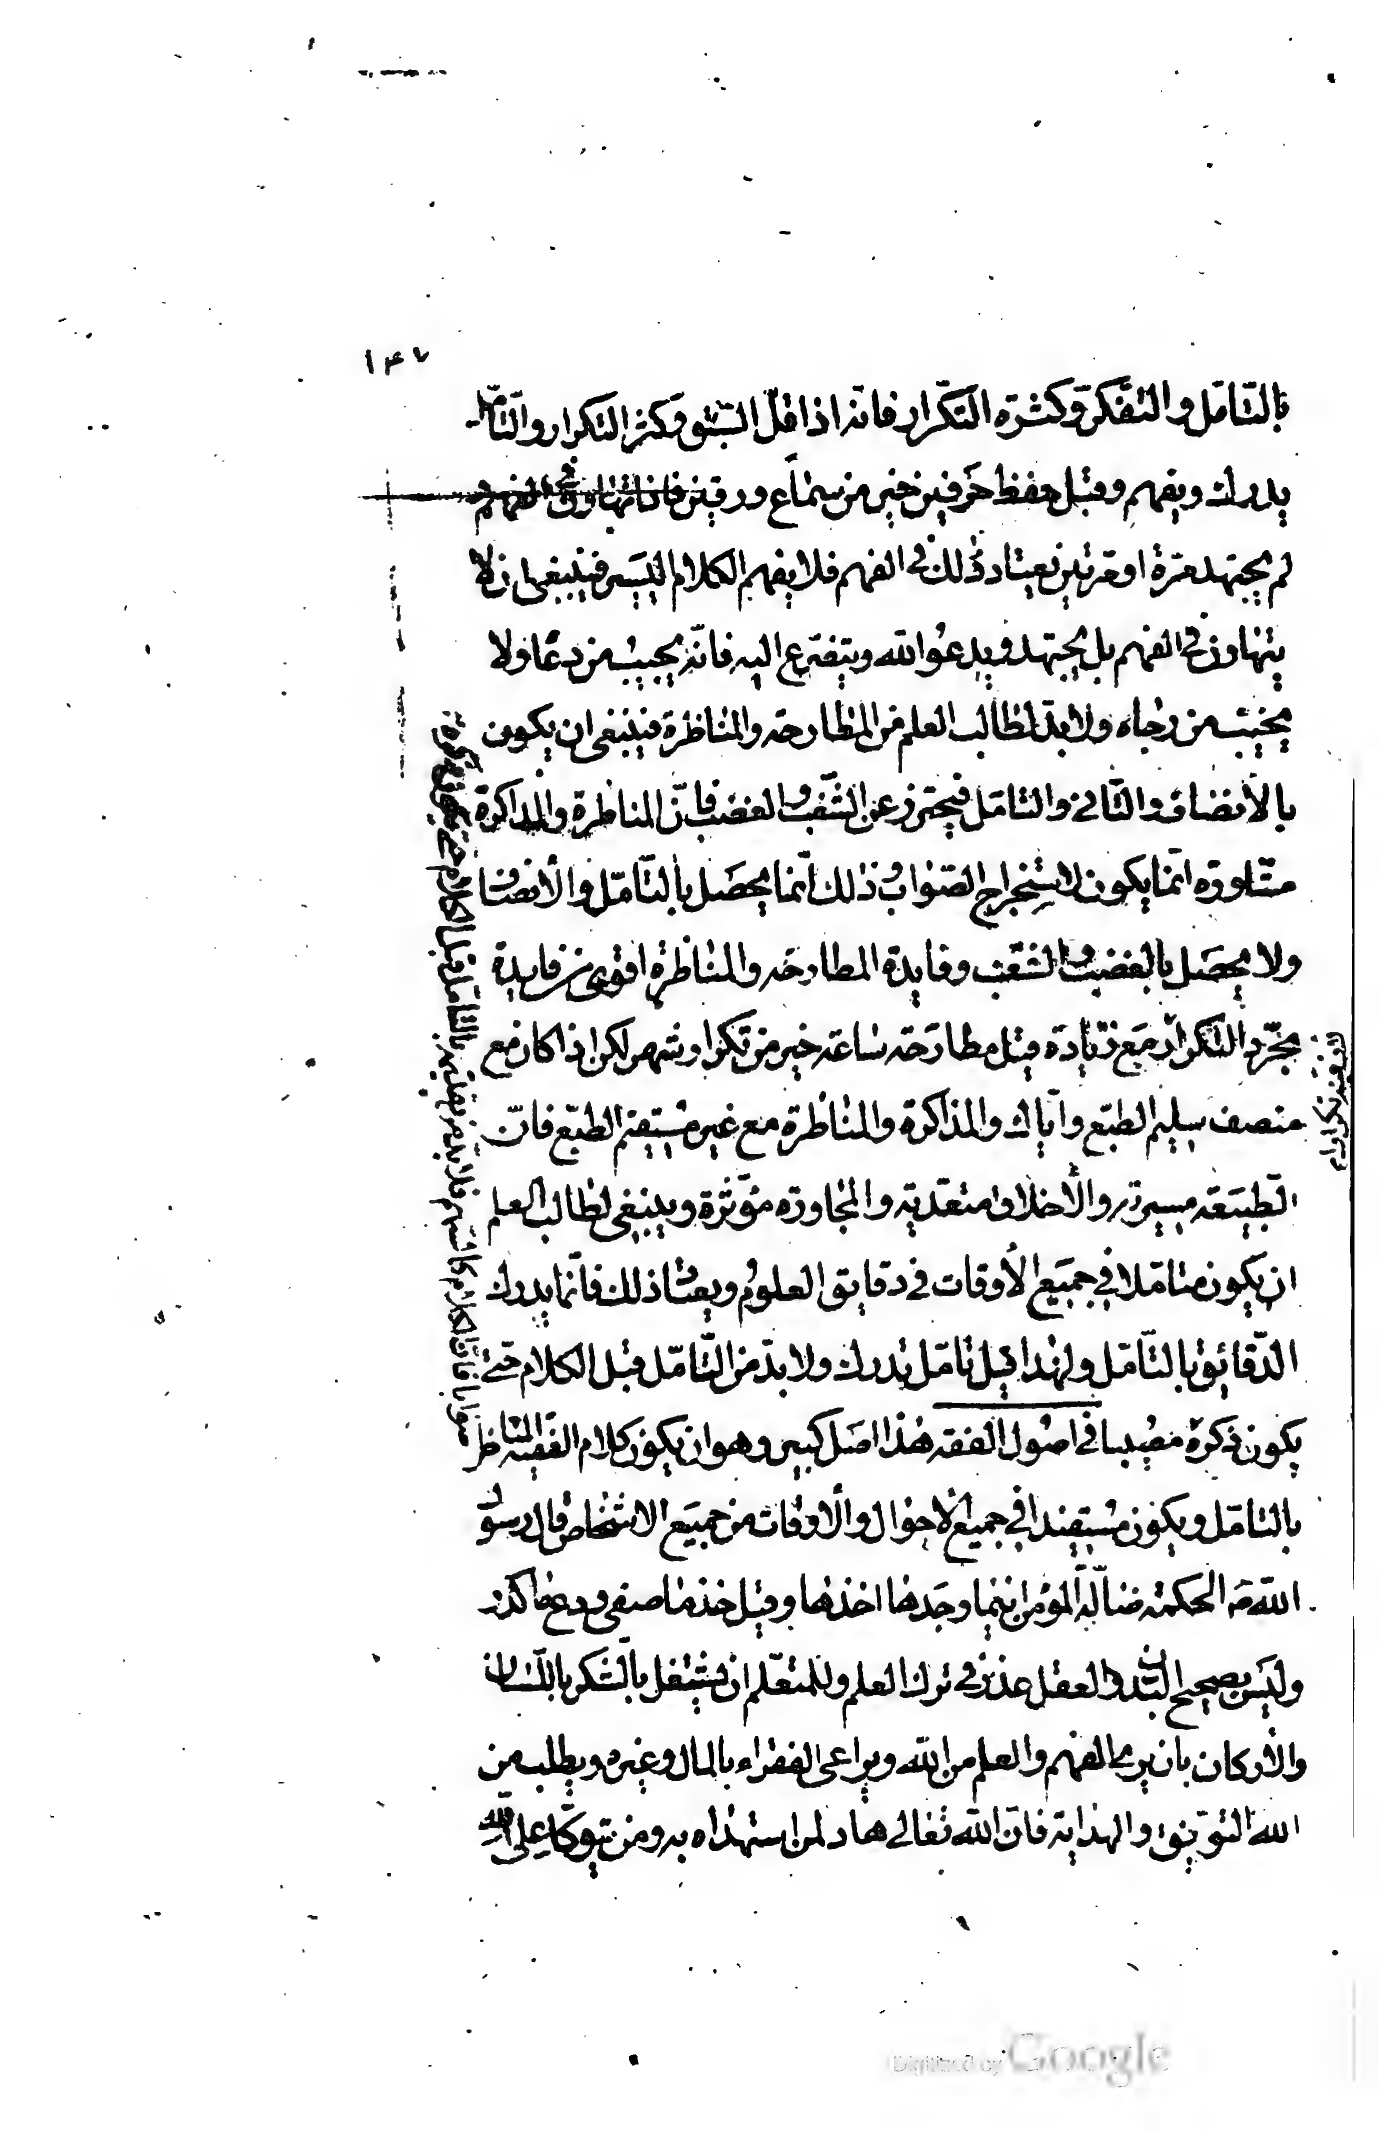 ١٤٧
بالتّامّل والتفكّر وكثرة التكرار فانه اذا قلّ السّبق وكثر التكرار والتّامل
يدرك ويفهم وقيل حفظ حرفين خير من سماع ورقين فاذا تهاون فى الفهم و
لم يجتهد مرّة او مرتين يعتاد ذلك فى الفهم فلا يفهم الكلام اليسير فينبغى ان لا
يتهاون فى الفهم بل يجتهد ويدعوا الله ويتضرّع اليه فانّه يجيب من دعا ولا
يخيب من رجاه ولا بدّ لطالب العلم من المطارحة والمناظرة فينبغى ان يكون
بالأنصاف والتّانى والتامّل فيحترز عن الشّغب والغضب فانّ المناظرة والمذاكرة
مشاورة انّما يكون لاستخراج الصّواب وذلك انّما يحصل بالتّامّل والأنصاف
ولا يحصل بالغضب والشّغب وفايدة المطارحة والمناظرة اقوى من فايدة
مجرّد التّكرار مع زيادة قيل مطارحة ساعة خير من تكرار شهر لكن اذا كان مع
منصف سليم الطبع وايّاك والمذاكرة والمناظرة مع غير مستقيم الطبع فانّ
الطبيعة مسيرة والأخلاق متعدية والمجاورة مؤثرة وينبغى لطالب العلم
ان يكون متامّلا فى جميع الأوقات فى دقايق العلوم ويعتاد ذلك فانّما يدرك
الدّقائق بالتّامّل ولهذا قيل تامّل تدرك ولا بدّ من التّامّل قبل الكلام حتى
يكون ذكره مفيدا فى اصول الفقه هذا اصل كبير وهو ان يكون كلام الفقيه المناظر
بالتامّل ويكون مستفيدا فى جميع الأحوال والأوقات من جميع الاشخاص قال رسول
الله ص الحكمة ضالّة المؤمن اينما وجدها اخذها وقيل خذ ما صفى ودع ما كدر
وليس بصحيح البدن والعقل عذر فى ترك العلم وللمتعلّم ان يشتغل بالشكر باللّسان
والأركان بان يرى الفهم والعلم من الله ويراعى الفقراء بالمال وغيره ويطلب من
الله التوفيق والهداية فان الله تعالى هاد لمن استهداه به ومن يتوكّل على الله
صوابا فانّ الكلام كالسّهم فلا بدّ من تقديمه بالتّامّل قبل الكلام حتى يكون ذكره
لانّ فيه تكرارا
Digitized by Google